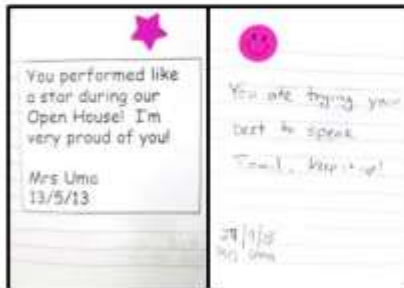 You performed like
a star during our
Open House! I'm
very proud of you!
Mrs Uma
13/5/13
You are trying your
best to speak
Tamil. Keep it up!
Mrs Uma